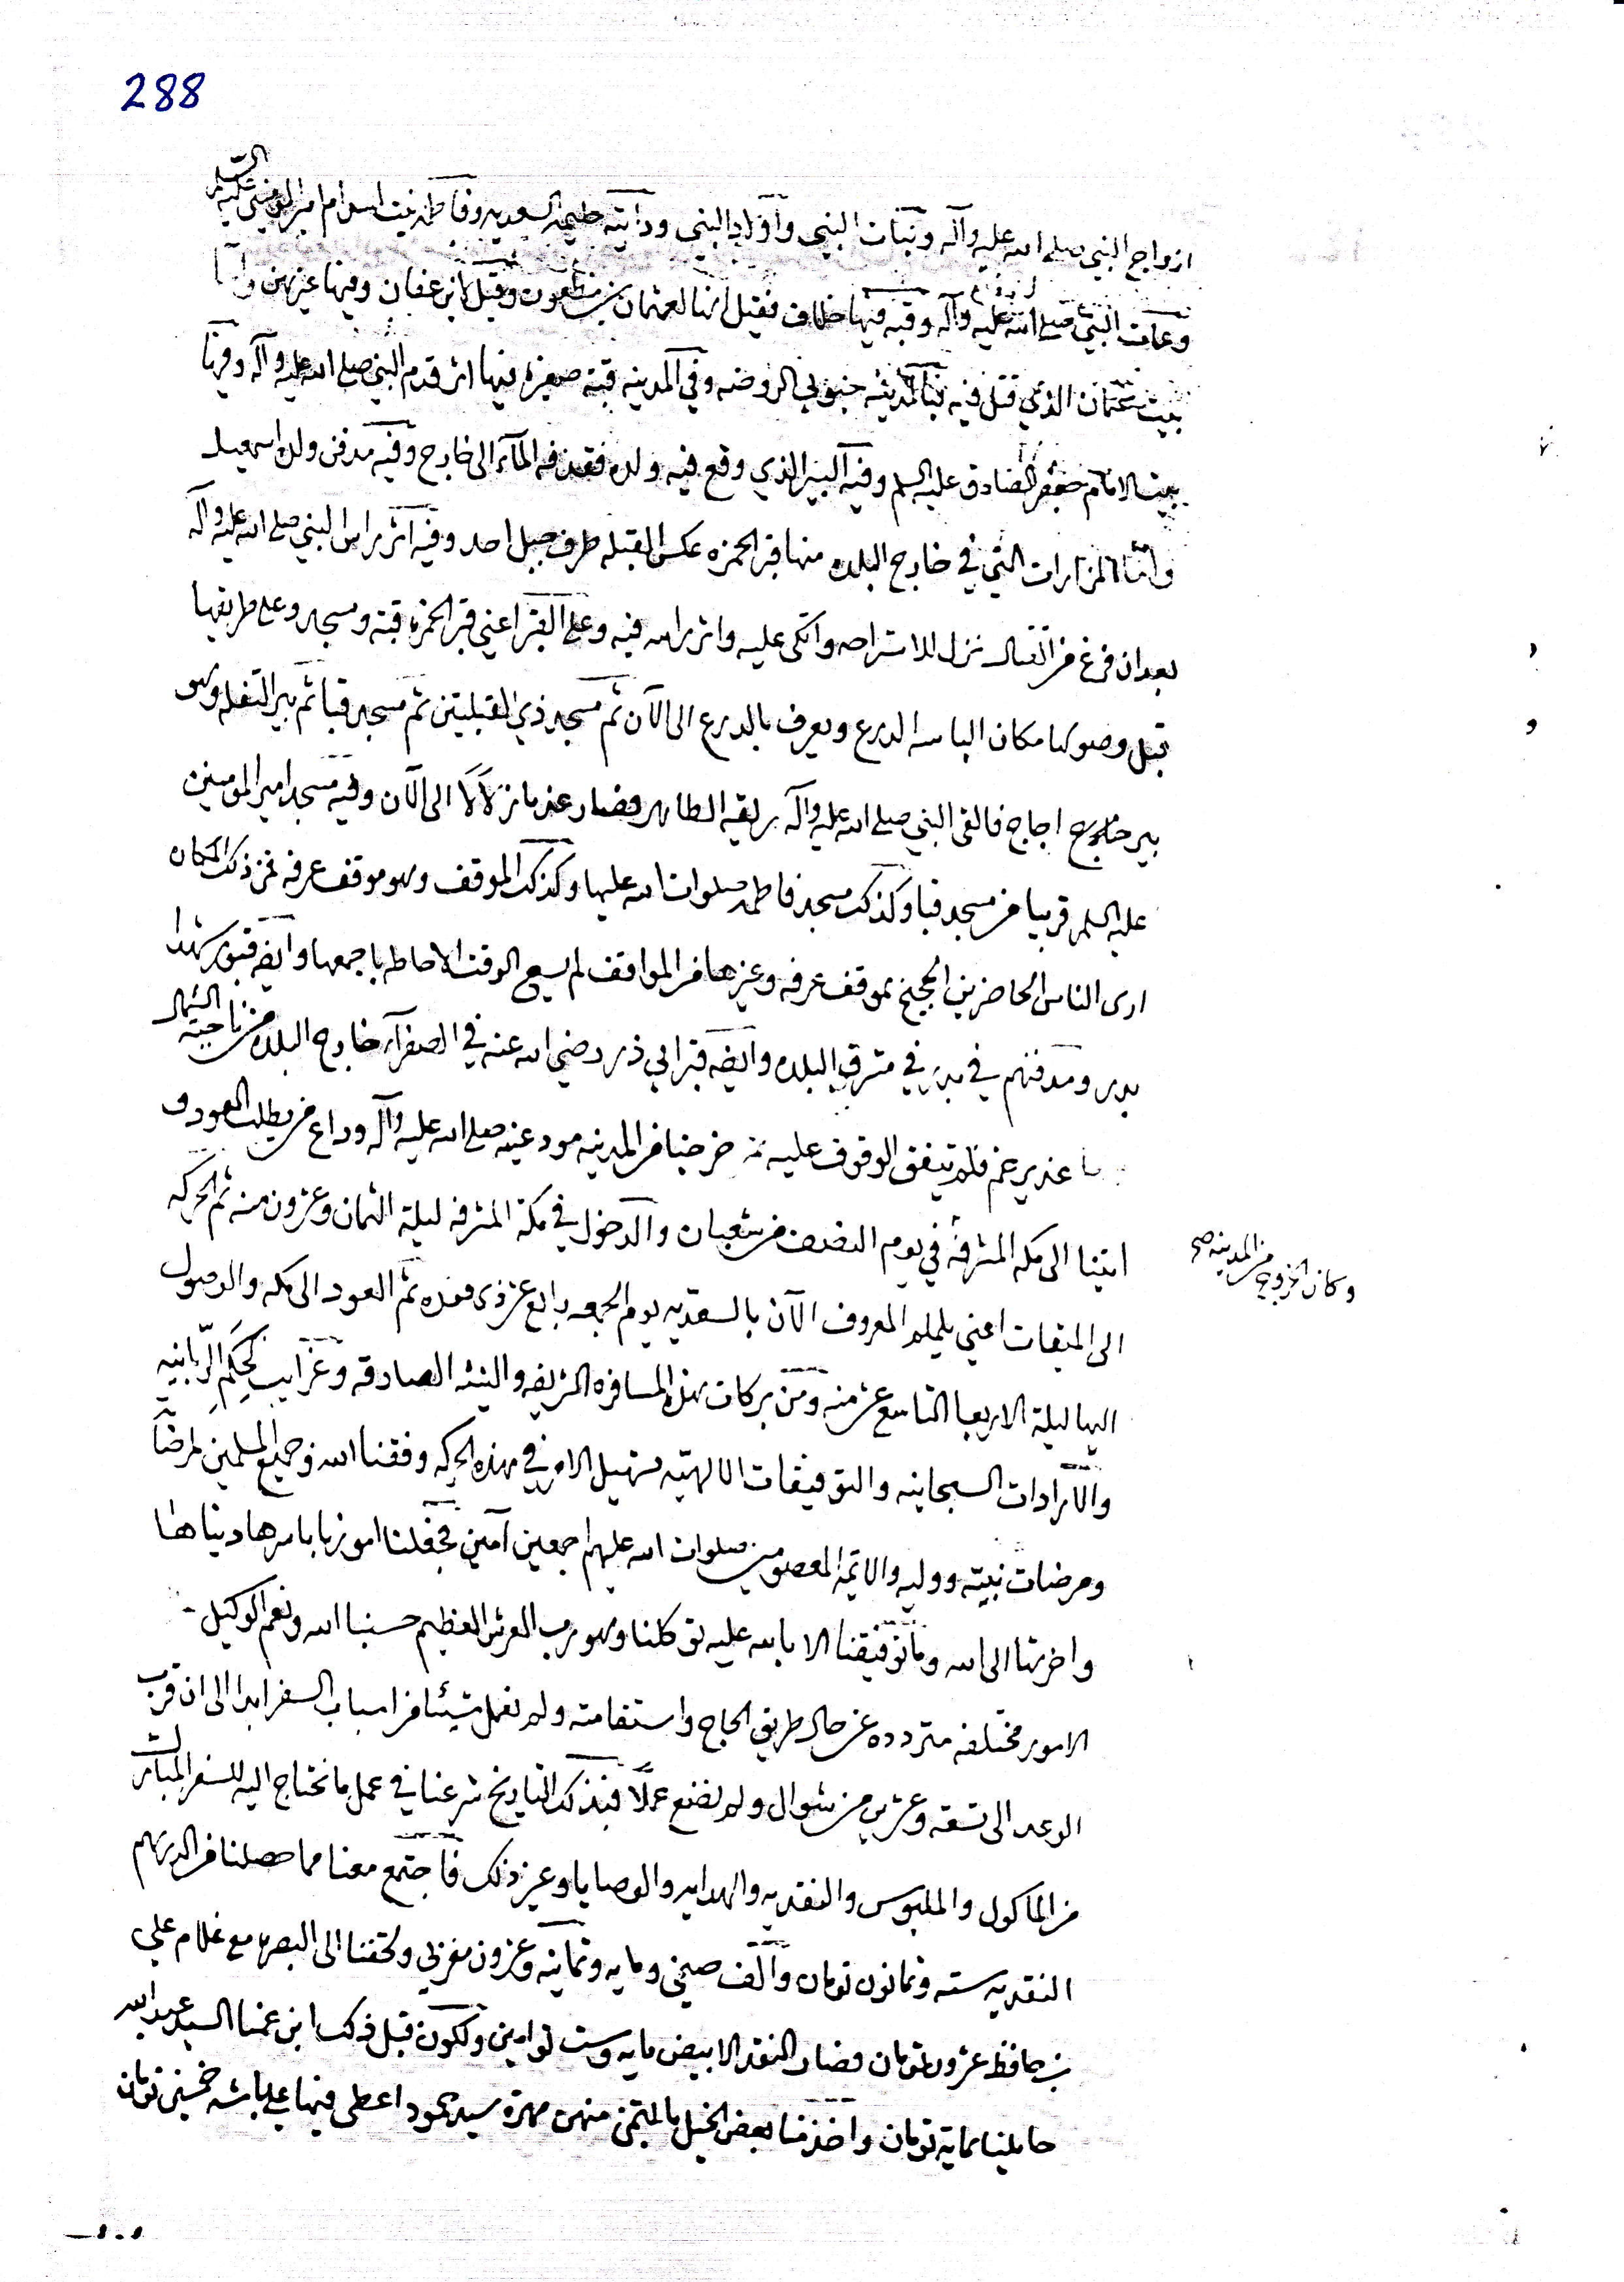 288
ازواج النبي صلى الله عليه وآله وبنات النبي وأولاد النبي ودايته حليمه السعديه وفاطمه بنت اسد ام امير المومنين عليه السلم
وعمات النبي صلى الله عليه وآله وقبه فيها خلاف فقيل انها لعثمان بن مظعون وقيل لابن عفان وفيها غيرهن وايضا
بيت عثمان الذي قتل فيه جنوبي الروضه وفي المدينه قبة صغيره فيها اثر قدم النبي صلى الله عليه وآله وفيها
بيت الامام جعفر الصادق عليه السلم وفيه البير الذي وقع فيه ولده الماء الى خارج وفيه مدفن ولده اسمعيل
واما المزارات التي في خارج البلده منها قبر الحمزه عكس القبله طرف جبل احد وفيه اثر راس النبي صلى الله عليه وآله
بعد ان فرغ من القتال نزل للاستراحه واتكى عليه واثر راسه فيه وعلى القبر اعني قبر الحمزه قبة ومسجد وعلى طريقها
قبل وصولها مكان الباسه الدرع ويعرف بالدرع الى الآن ثم مسجد ذي القبلتين ثم مسجد قبا ثم بير التفله وهو
بير اجاج فالقى النبي صلى الله عليه وآله ريقه الطاهر فصار عذبا زلالا الى الآن وفيه مسجد امير المومنين
عليه السلم قريبا من مسجد قبا وكذلك مسجد فاطمه صلوات الله عليها وكذلك الموقف وهو موقف عرفه فمن ذلك المكان
ارى الناس الحاضرين الحجيج بموقف عرفه وغيرها من المواقف لم يسع الوقت الاحاطه باجمعها وايضه قبور شهدا
بدر ومدفنهم في بدر في مشرق البلده وايضه قبر ابي ذر رضي الله عنه في الصفرآء خارج البلده من ناحية الشمال
غدير خم فلم يتفق الوقوف عليه ثم خرجنا من المدينه مودعينه صلى الله عليه وآله وداع من يطلب العود و
اتينا الى مكه المشرفه في يوم النصف من شعبان والدخول في مكة المشرفه ليلة الثمان وعشرون منه ثم الحركه
وكان الخروج من المدينه صح
الى الميقات اعني يلملم المعروف الآن بالسعديه يوم الجمعه رابع عشر ذى قعده ثم العود الى مكه والوصول
اليها ليلة الاربعا التاسع عشر منه ومن بركات هذه المسافره الشريفه والنيه الصادقه وغرايب الحكم الربانيه
والارادات السبحانيه والتوفيقات الالهيه تسهيل الامر في هذه الحركه وفقنا الله وجميع المسلمين لمرضاته
ومرضات نبيه ووليه والائمه المعصومين صلوات الله عليهم اجمعين آمين فجعلنا امورنا باسرها دنياها
واخرتها الى الله وما توفيقنا الا بالله عليه توكلنا وهو رب العرش العظيم حسبنا الله ونعم الوكيل
الامور مختلفه متردده عن حال طريق الحاج واستقامته ولم نعمل شيئا من اسباب السفر ابدا الى ان قرب
الوعد الى تسعه وعشرين من شوال ولم نصنع عملا فبذلك التاريخ شرعنا في عمل ما نحتاج اليه للسفر المبارك
من الماكول والملبوس والنقديه والهدايه والوصايا وغير ذلك فاجتمع معنا مما حصلنا من الدراهم
النقديه سته وثمانون تومان والف صيني ومايه وثمانيه وعشرون مغربي ولحقنا الى البصره مع غلام علي
بن حافظ عشرون تومان فصار النقد الابيض مايه وست توامين ولكون قبل ذلك ابن عمنا السيد عبد الله
حاملينا بماية تومان واخذ منا بعض الخيل بالمثمن منهن مهرة سيد محمود اعطى فيها علي باشه خمسين تومان